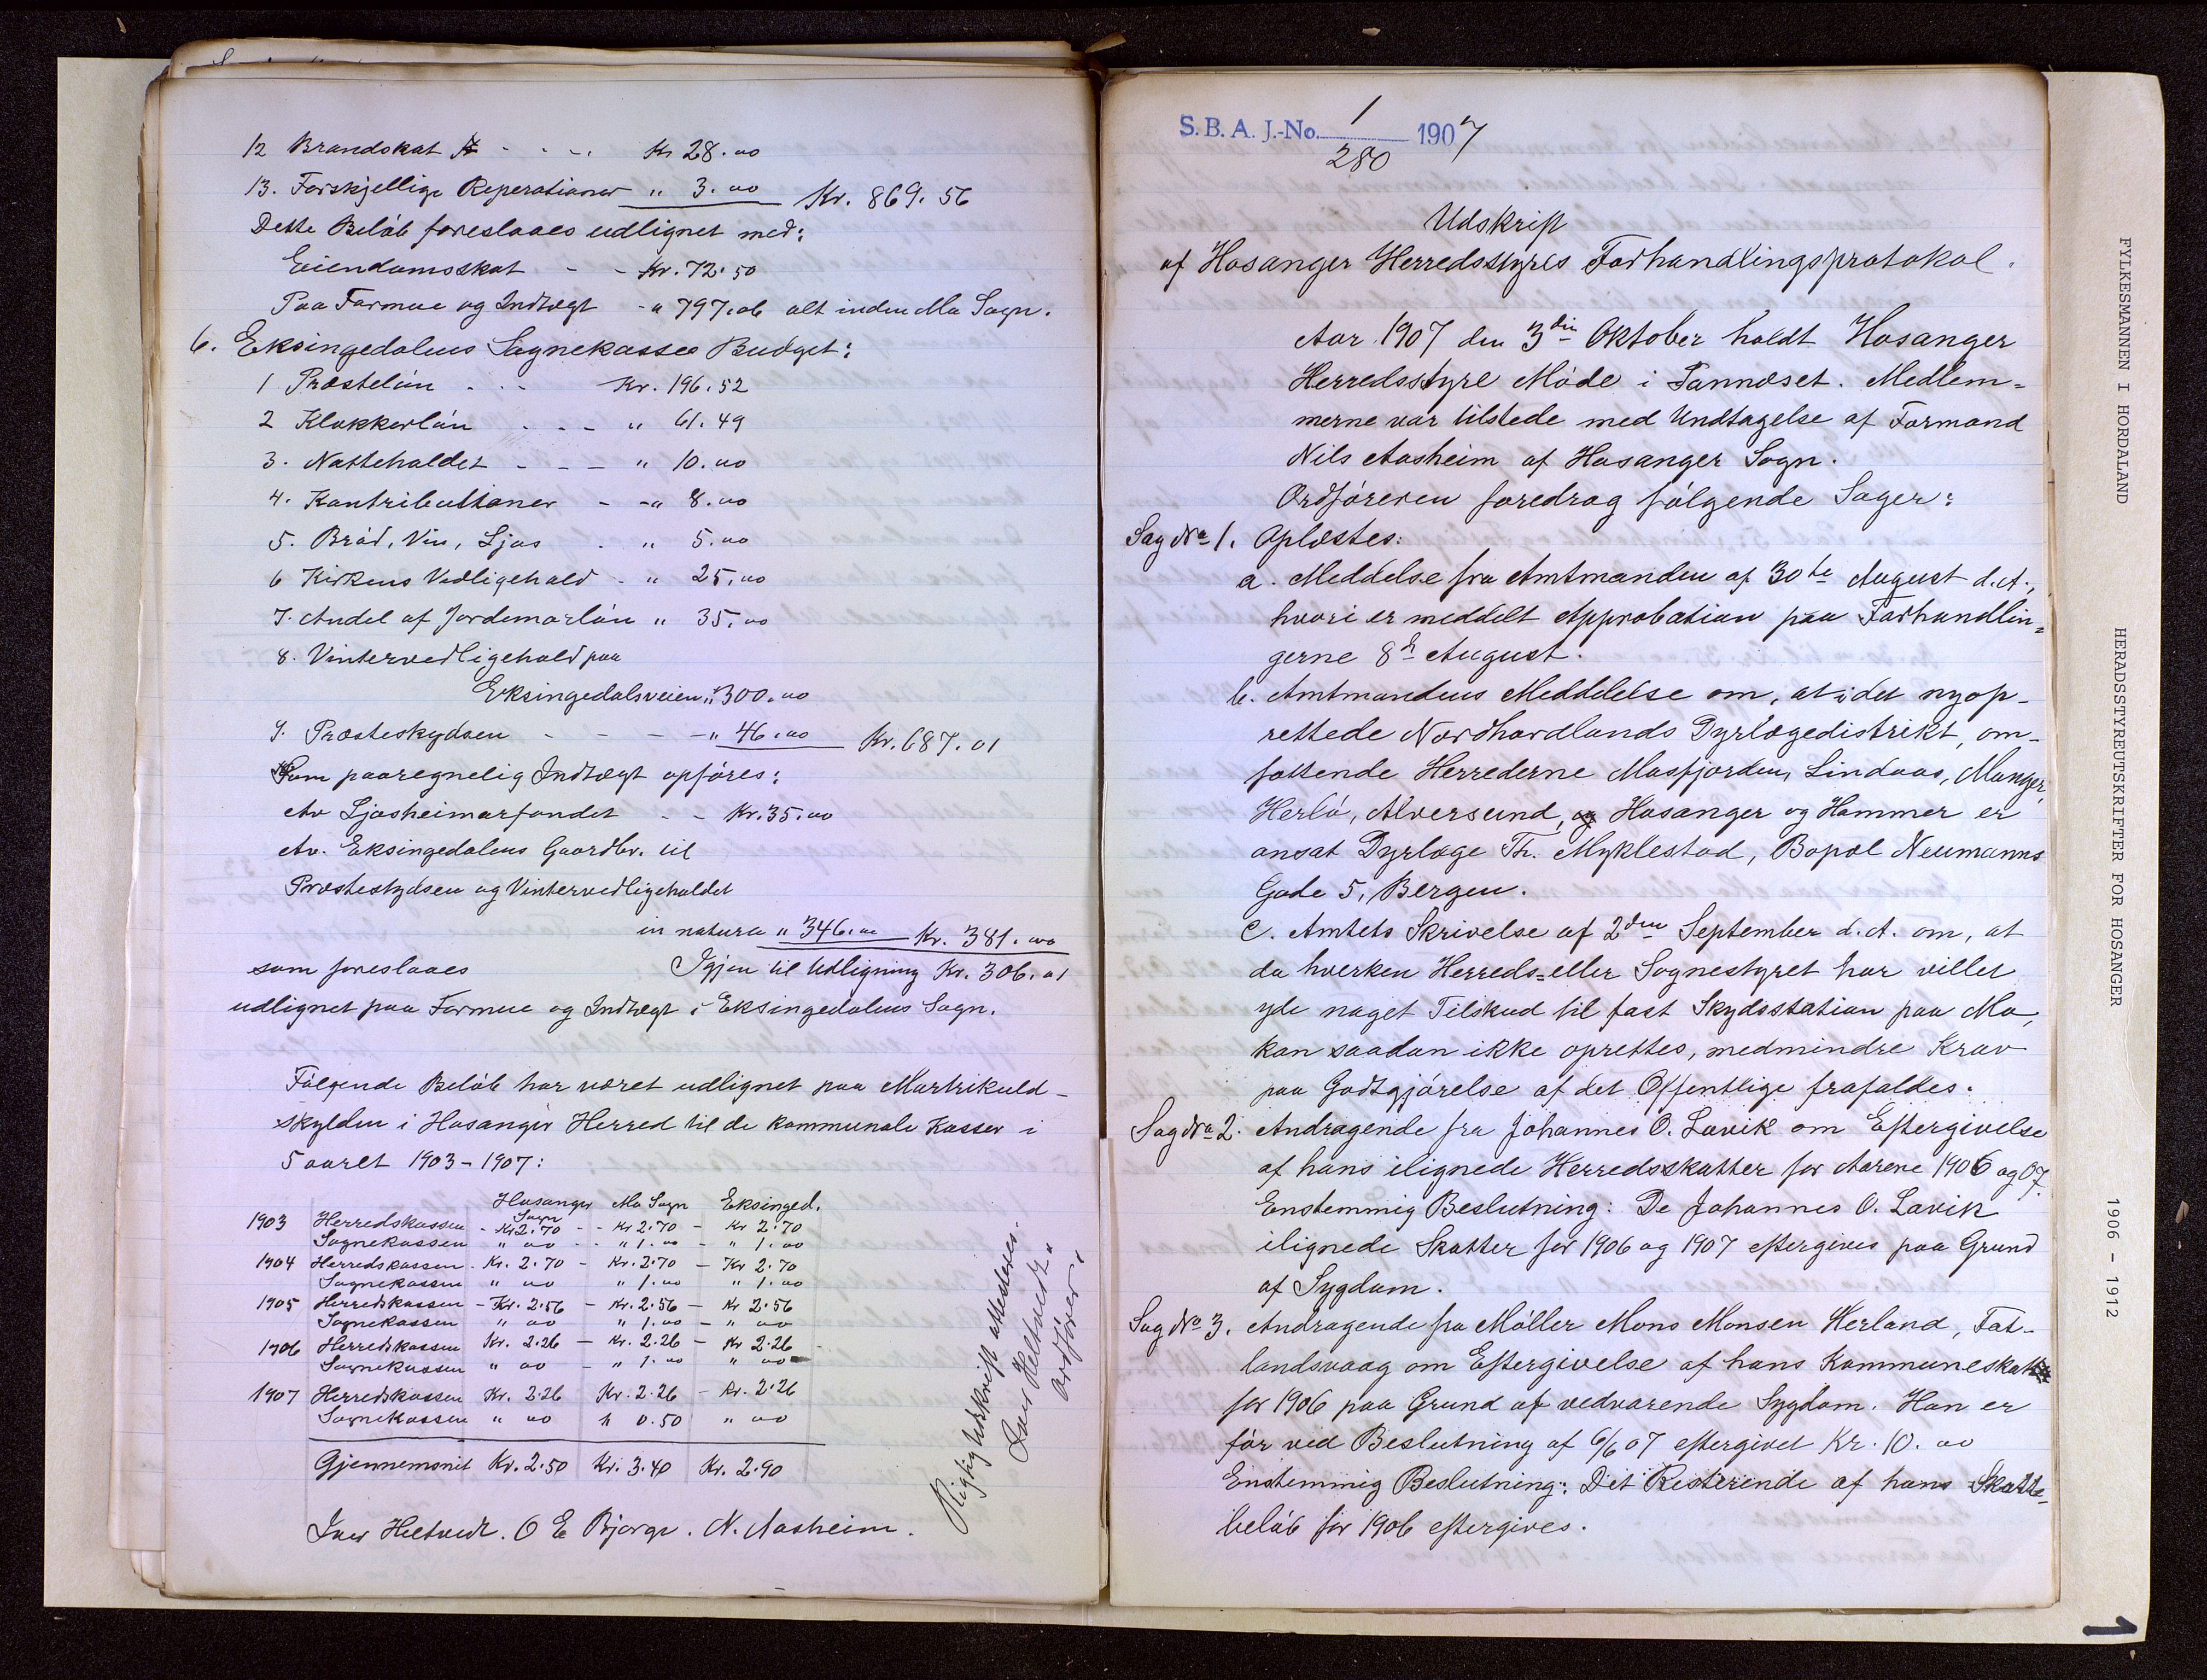 12 Brandskat - - - Kr 28.00
13. Forskjellige Reperationer " 3.00 Kr. 869.56
Dette Beløb foreslaaes udlignet med:
Eiendomsskat - - Kr. 72.50
Paa Formue og Indtægt - " 797.06 alt inden Mo Sogn.
6. Eksingedalens Sognekasses Budget:
1 Præsteløn - - - Kr. 196.52
2 Klokkerløn - - - " 61.49
3. Nattholdet - - - " 10.00
4. Kontributioner - - " 8.00
5. Brød, Vin, Ljos - " 5.00
6 Kirkens Vedligehold - " 25.00
7. Andel af Jordemorløn " 35.00
8. Vintervedligehold paa
Eksingedalsveien " 300.00
9. Præsteskydsen - - - " 46.00 Kr. 687.01
Som paaregnelig Indtægt opføres:
Av Ljosheimarfondet - - Kr. 35.00
Av. Eksingedalens Gaardbr. til
Præsteskydsen og Vintervedligeholdet
in natura " 346.00 Kr. 381.00
som foreslaaes Igjen til Udligning Kr. 306.01
udlignet paa Formue og Indtægt i Eksingedalens Sogn.
Følgende Beløb har været udlignet paa Martrikuld-
skylden i Hosanger Herred til de kommunale Kasser i
5 aaret 1903-1907:
Hosanger Sogn Mo Sogn Eksinged.
1903 Herredskassen - Kr 2.70 - - Kr 2.70 - Kr 2.70
Sognekassen " 00 - - " 1.00 - " 1.00
1904 Herredskassen - Kr. 2.70 - Kr. 2.70 - Kr 2.70
Sognekassen " 00 " 1.00 " 1.00
1905 Herredskassen - Kr. 2.56 - Kr. 2.56 - Kr 2.56
Sognekassen " 00 " 1.00 - " 00
1906 Herredskassen Kr. 2.26 - Kr. 2.26 - Kr 2.26
Sognekassen " 00 - " 1.00 " 00
1907 Herredskassen Kr. 2.26 Kr. 2.26 - Kr. 2.26
Sognekassen " 00 " 0.50 " 00
Gjennemsnit Kr. 2.50 Kr. 3.40 Kr. 2.90
Iver Heltvedt. O E Bjørge. N. Aasheim.
Rigtig Udskrift attesteres.
Iver Heltvedt
ordfører.
S. B. A. J.-No. 1/280 1907
Udskrift
af Hosanger Herredsstyres Forhandlingsprotokol.
Aar 1907 den 3die Oktober holdt Hosanger
Herredsstyre Møde i Fannæset. Medlem=
merne var tilstede med Undtagelse af Formand
Nils Aasheim af Hosanger Sogn.
Ordføreren foredrog følgende Sager:
Sag No 1. Oplæstes:
a. Meddelse fra Amtmanden af 30te August d.A.,
hvori er meddelt Approbation paa Forhandlin=
gerne 8de August.
b. Amtmandens Meddelelse om, at i det nyop-
rettede Nordhordlands Dyrlægedistrikt, om-
fattende Herrederne Masfjorden, Lindaas, Manger,
Herlø, Alversund, og Hosanger og Hammer er
ansat Dyrlæge Th. Myklestad, Bopæl Neumanns
Gade 5, Bergen.
c. Amtets Skrivelse af 2den September d.A. om, at
da hverken Herreds= eller Sognestyret har villet
yde noget Tilskud til fast Skydsstation paa Mo,
kan saadan ikke oprettes, medmindre Krav
paa Godtgjørelse af det Offentlige frafaldes.
Sag No 2. Andragende fra Johannes O. Lavik om Eftergivelse
af hans ilignede Herredsskatter for Aarene 1906 og 07.
Enstemmig Beslutning: De Johannes O. Lavik
ilignede Skatter for 1906 og 1907 eftergives paa Grund
af Sygdom.
Sag No 3. Andragende fra Møller Mons Monsen Herland, Fat-
landsvaag om Eftergivelse af hans Kommuneskat
for 1906 paa Grund af vedvarende Sygdom. Han er
før ved Beslutning af 6/6 07 eftergivet Kr. 10.00
Enstemmig Beslutning: Det Resterende af hans Skatte-
beløb for 1906 eftergives.
FYLKESMANNEN I HORDALAND
HERADSSTYREUTSKRIFTER FOR HOSANGER
1906 - 1912
1